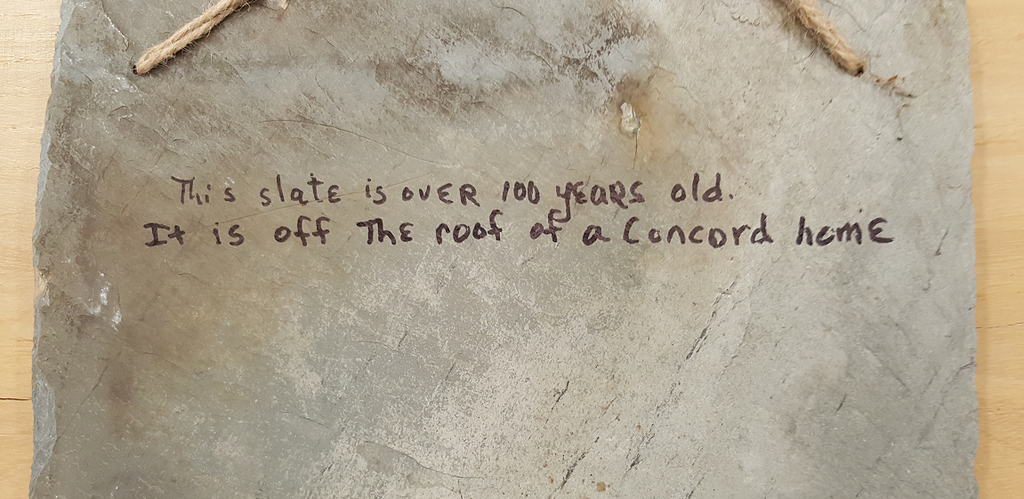 This slate is over 100 years old.
It is off The roof of a Concord home